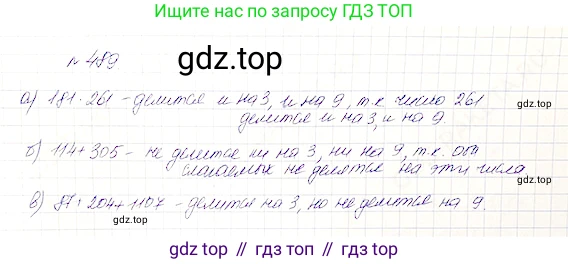 Ищите нас по запросу ГДЗ ТОП
№ 489
gdz.top
а) 181·261 - делится и на 3, и на 9, т.к. число 261
делится и на 3, и на 9
б) 114+305 - не делится ни на 3, ни на 9, т.к. оба
слагаемых не делятся на эти числа.
в) 87+204+1107 - делится на 3, но не делится на 9.
gdz.top // гдз топ // гдз.top